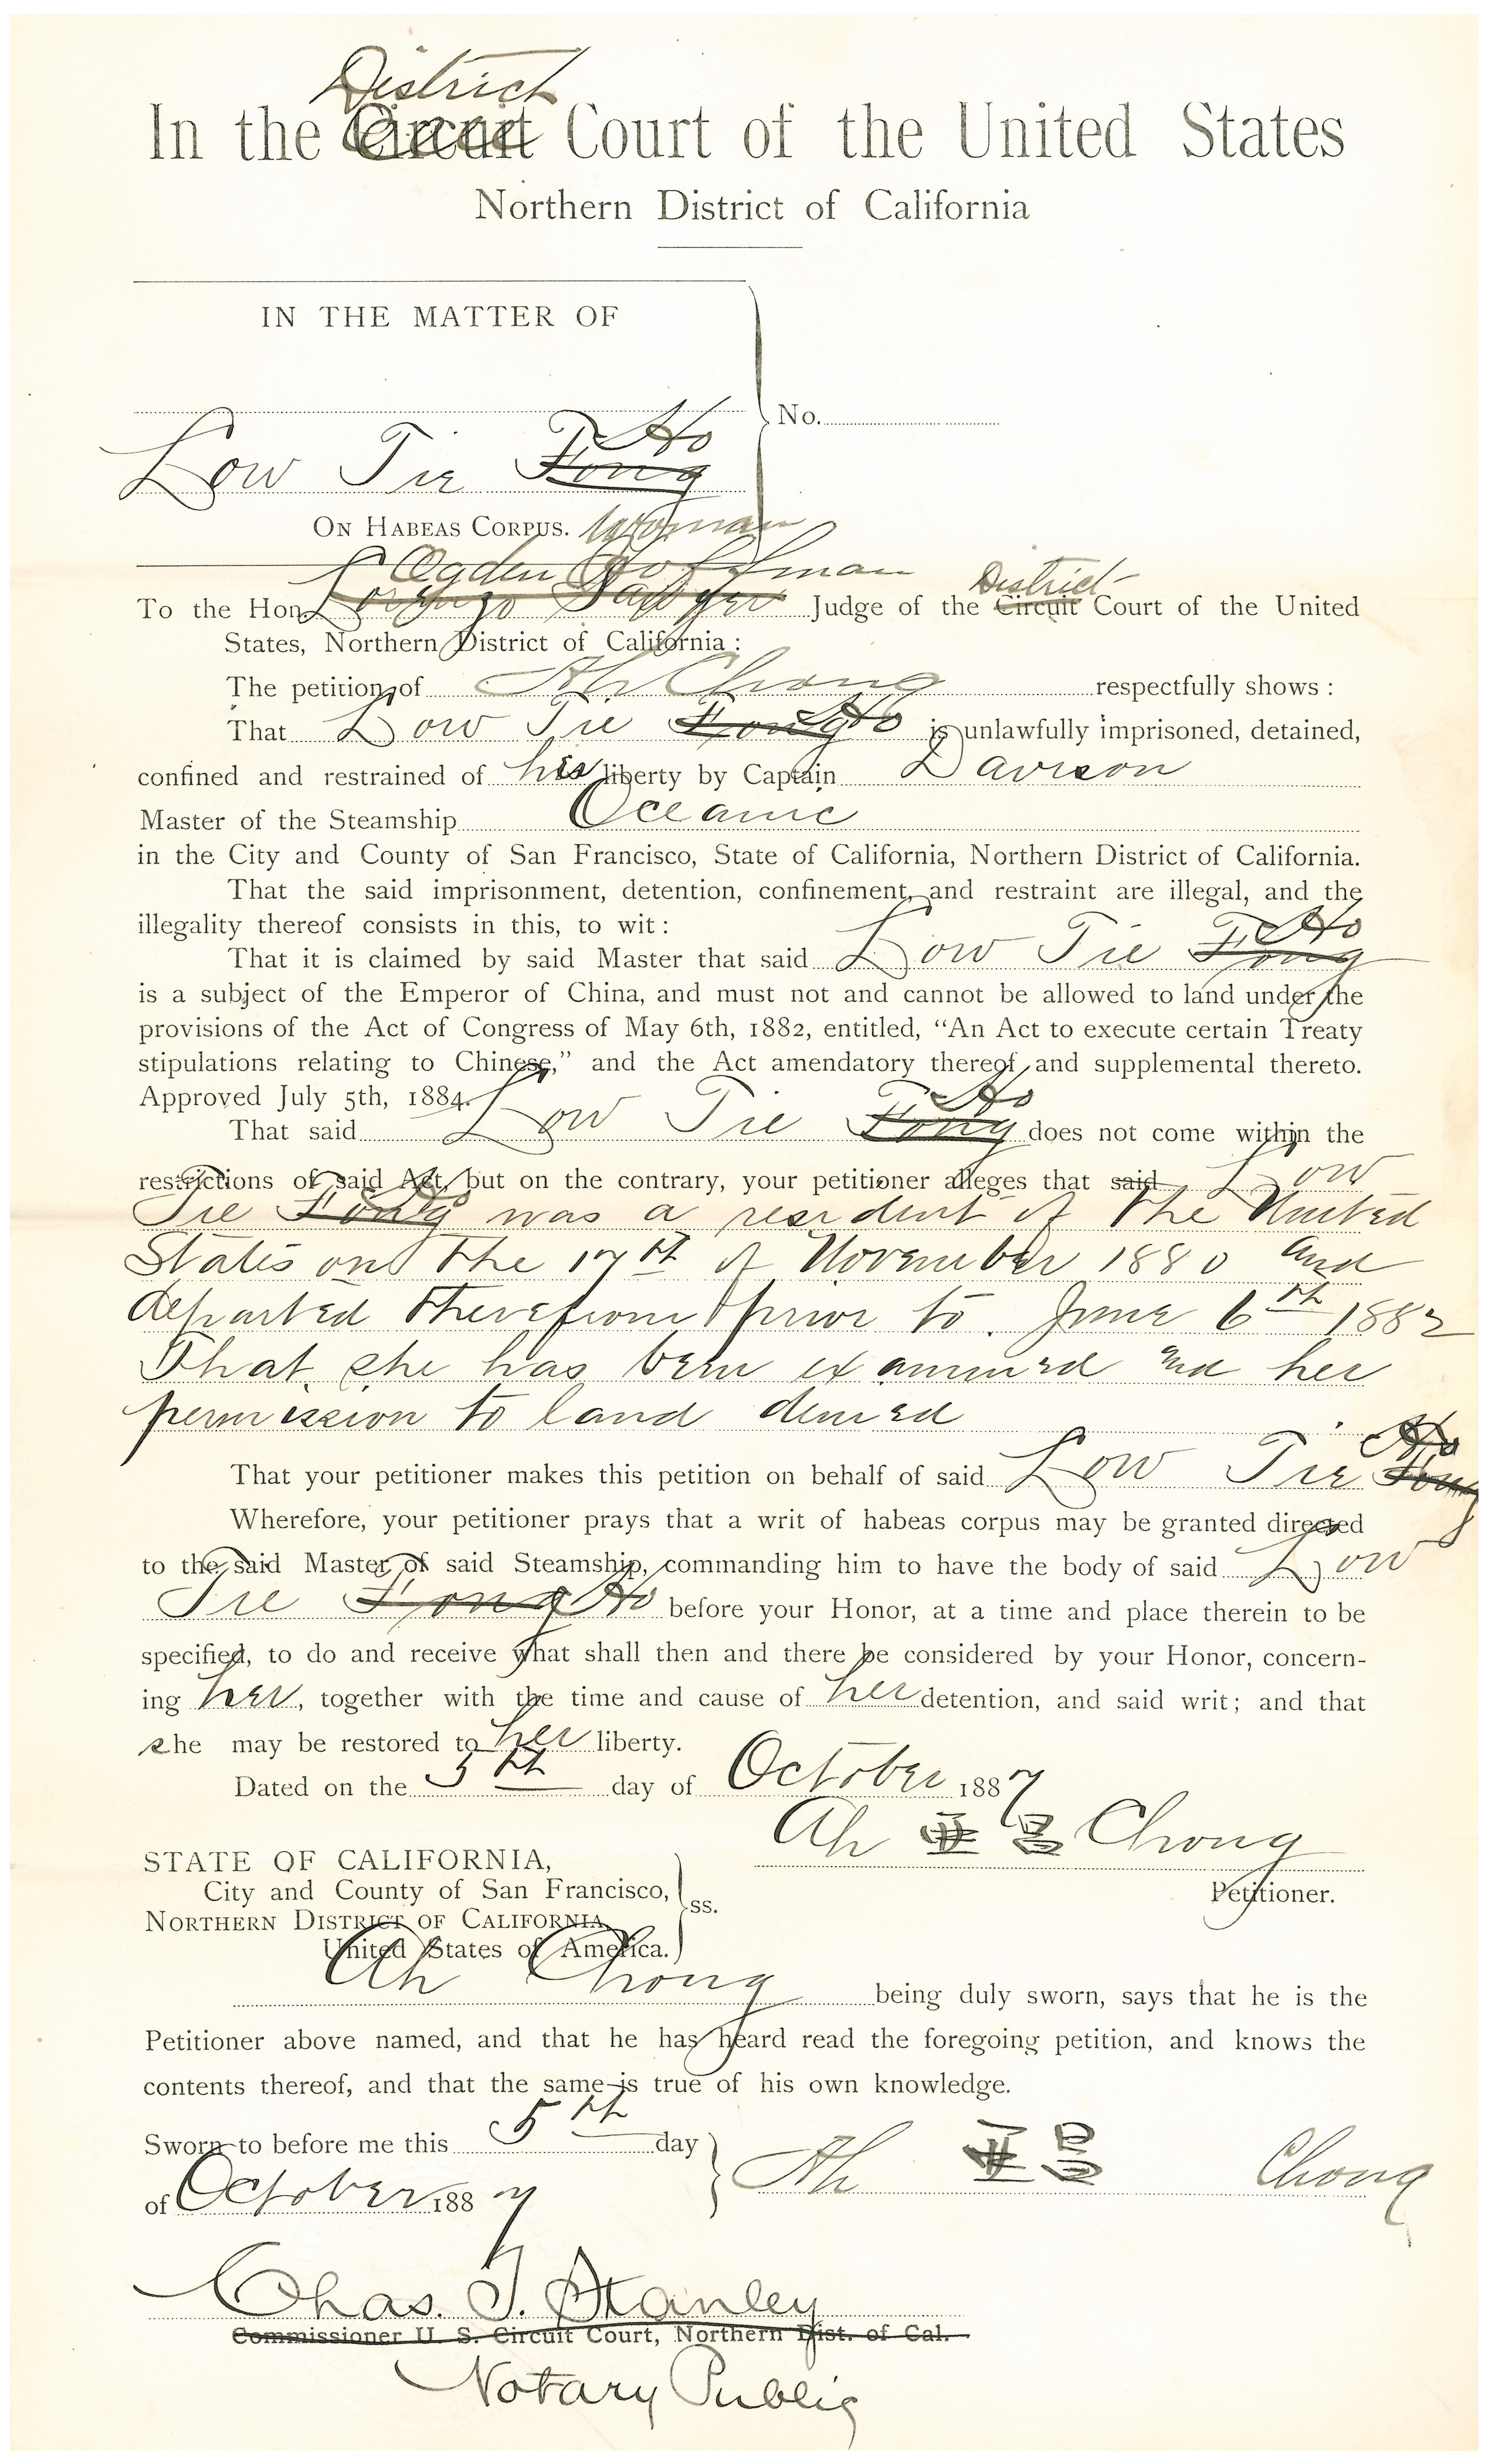 District
In the Circuit Court of the United States
Northern District of California
IN THE MATTER OF
No.
Ho
Low Tie Fong
ON HABEAS CORPUS. Woman
Ogden Hoffman District
To the Hon. Lorenzo Sawyer Judge of the Circuit Court of the United
States, Northern District of California:
The petition of Ah Chong respectfully shows:
That Low Tie Fong Ho is unlawfully imprisoned, detained,
confined and restrained of his liberty by Captain Davison
Master of the Steamship Oceanic
in the City and County of San Francisco, State of California, Northern District of California.
That the said imprisonment, detention, confinement, and restraint are illegal, and the
illegality thereof consists in this, to wit:
Ho
That it is claimed by said Master that said Low Tie Fong
is a subject of the Emperor of China, and must not and cannot be allowed to land under the
provisions of the Act of Congress of May 6th, 1882, entitled, “An Act to execute certain Treaty
stipulations relating to Chinese,” and the Act amendatory thereof and supplemental thereto.
Approved July 5th, 1884.
Ho
That said Low Tie Fong does not come within the
restrictions of said Act, but on the contrary, your petitioner alleges that said Low
Tie Fong Ho was a resident of the United
States on the 17th of November 1880 and
departed therefrom prior to June 6th 1882
That she has been examined and her
permission to land denied
Ho
That your petitioner makes this petition on behalf of said Low Tie Fong
Wherefore, your petitioner prays that a writ of habeas corpus may be granted directed
to the said Master of said Steamship, commanding him to have the body of said Low
Tie Fong Ho before your Honor, at a time and place therein to be
specified, to do and receive what shall then and there be considered by your Honor, concern-
ing her, together with the time and cause of her detention, and said writ; and that
she may be restored to her liberty.
Dated on the 5th day of October 1887
Ah 亜昌 Chong
Petitioner.
STATE OF CALIFORNIA,
City and County of San Francisco,
NORTHERN DISTRICT OF CALIFORNIA,
United States of America.
ss.
Ah Chong being duly sworn, says that he is the
Petitioner above named, and that he has heard read the foregoing petition, and knows the
contents thereof, and that the same is true of his own knowledge.
Sworn to before me this 5th day
of October 1887
Ah 亜昌 Chong
Chas. T. Stanley
Commissioner U. S. Circuit Court, Northern Dist. of Cal.
Notary Public